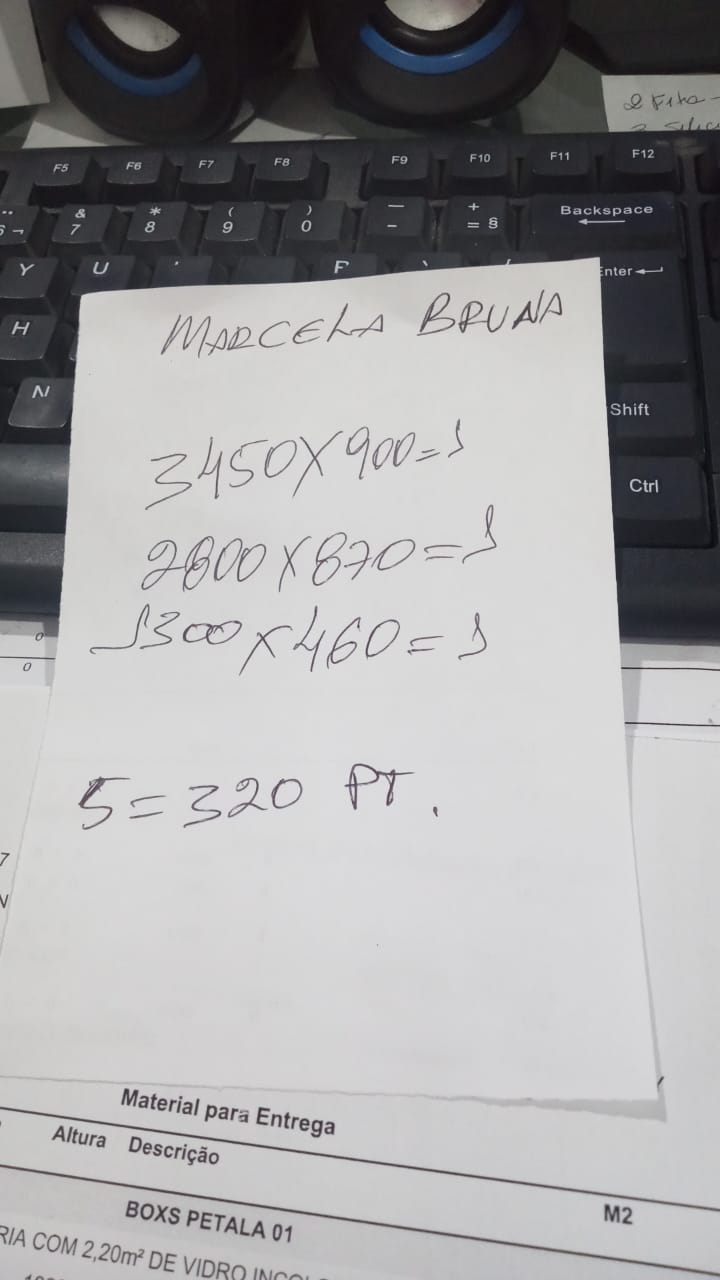 2 Fita -
F5 F6 F7 F8 F9 F10 F11 F12
& 7 * 8 ( 9 ) 0 — - + = § Backspace
Y U Enter
MARCELA BRUNA
H
N
Shift
3450X900=1
Ctrl
2800X870=1
1300X460=1
5=320 PT.
Material para Entrega
Altura Descrição
M2
BOXS PETALA 01
RIA COM 2,20m² DE VIDRO